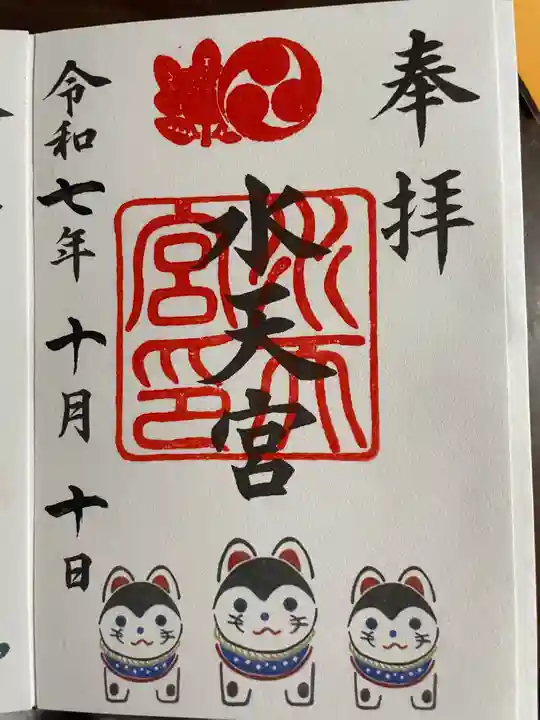 奉拝
水天宮
水天宮印
令和七年 十月 十日